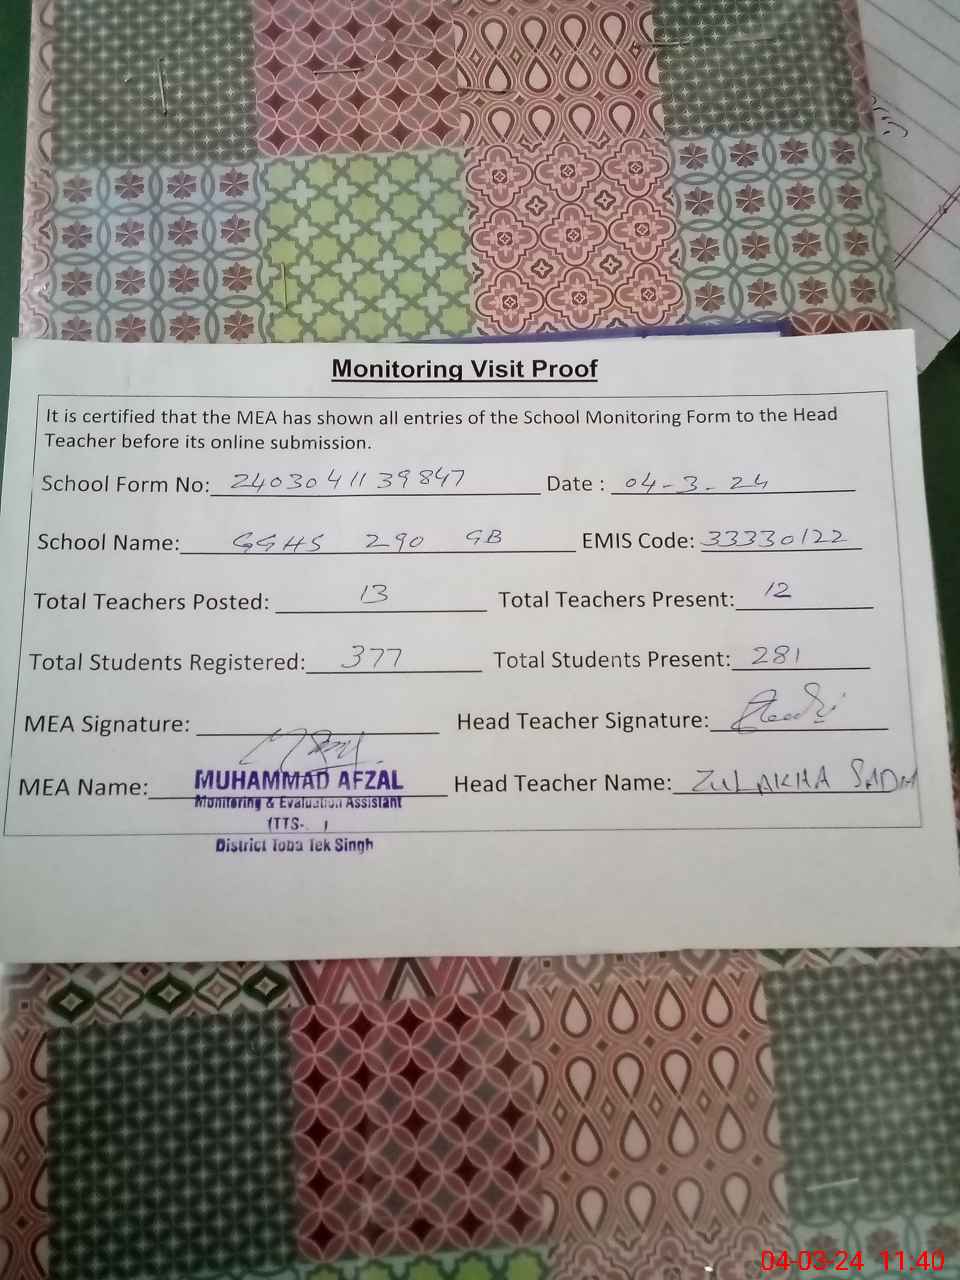 Monitoring Visit Proof
It is certified that the MEA has shown all entries of the School Monitoring Form to the Head
Teacher before its online submission.
School Form No: 2403041139847 Date : 04-3-24
School Name: GGHS 290 GB EMIS Code: 33330122
Total Teachers Posted: 13 Total Teachers Present: 12
Total Students Registered: 377 Total Students Present: 281
MEA Signature: Head Teacher Signature:
MEA Name: MUHAMMAD AFZAL Head Teacher Name: ZULAKHA
Monitoring & Evaluation Assistant
(TTS- )
District Toba Tek Singh
04-03-24 11:40